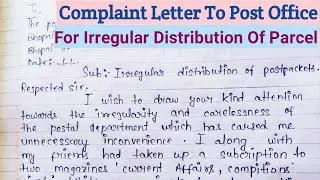 Complaint Letter To Post Office
For Irregular Distribution Of Parcel
The
The po
Bhopal
Bhopal
Date:-
Sub:- Irregular distribution of postpackets.
Respected sir,
I wish to draw your kind attention
towards the irregularity and carelessness of
the postal department which has caused me
unnecessary inconvenience. I along with
my friends had taken up a subcription to
two magazines 'current Affairs, compitions